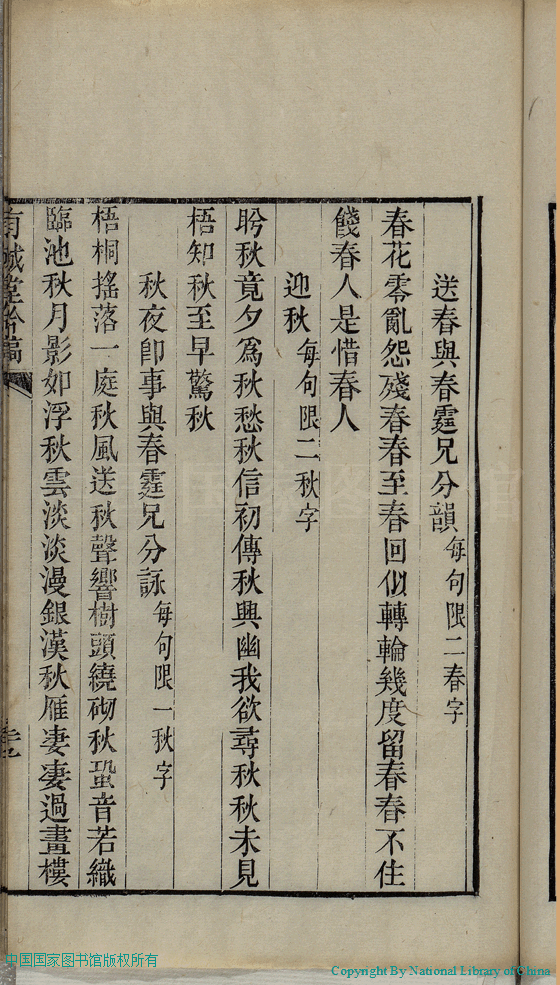 送春與春霆兄分韻每句限二春字
春花零亂怨殘春春至春回似轉輪幾度留春春不住
餞春人是惜春人
迎秋每句限二秋字
盻秋竟夕爲秋愁秋信初傳秋興幽我欲尋秋秋未見
梧知秋至早驚秋
秋夜卽事與春霆兄分詠每句限一秋字
梧桐搖落一庭秋風送秋聲響樹頭繞砌秋蛩音若織
臨池秋月影如浮秋雲淡淡漫銀漢秋雁凄凄過畫樓
中国国家图书馆版权所有
Copyright By National Library of China